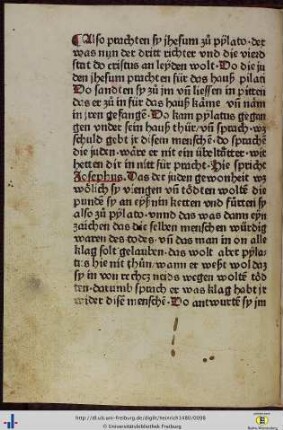 Also prachten sy jhesum zů pylato · der
was nun der dritt richter vnd die vierd
stat do cristus an leyden wolt · Do die ju
den jhesum prachten für das hauß pilati
Do sandten sy zů jm vñ liessen in pitten
das er zů in für das hauß käme vñ näm
in jren gefangẽ · Do kam pylatus gegan
gen vnder sein hauß thür · vñ sprach · wz
schuld gebt jr disem menschẽ · do sprachẽ
die juden · wäre er nit ein übeltätter · wir
hetten dir in nitt für pracht · Hie spricht
Josephus · Das der juden gewonheit wz
wölich sy viengen vñ tödten woltẽ die
pundẽ sy an eyſnin ketten vnd fürten sy
also zů pylato · vnnd das was dann eyn
zaichen das die selben menschen würdig
waren des todes · vñ das man in on alle
klag solt gelauben · das wolt aber pyla
tus hie nit thůn · wann er weßt wol daz
sy in von neids wegen woltẽ töd
ten · darumb sprach er was klag habt jr
wider disẽ menschẽ · Do antwurtẽ sy jm
http://dl.ub.uni-freiburg.de/diglit/
© Universitätsbibliothek Freiburg